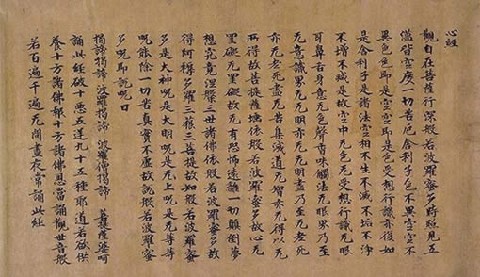 心経
觀自在菩薩行深般若波羅蜜多時照見五
蘊皆空度一切苦厄舍利子色不異空空不
異色色即是空空即是色受想行識亦復如
是舍利子是諸法空相不生不滅不垢不淨
不增不減是故空中无色无受想行識无眼
耳鼻舌身意无色聲香味觸法无眼界乃至
无意識界无无明亦无无明盡乃至无老死
亦无老死盡无苦集滅道无智亦无得以无
所得故菩提薩埵依般若波羅蜜多故心无
罣礙无罣礙故无有恐怖遠離一切顛倒夢
想究竟涅槃三世諸佛依般若波羅蜜多故
得阿耨多羅三藐三菩提故知般若波羅蜜
多是大神呪是大明呪是无上呪是无等等
呪能除一切苦真實不虛故說般若波羅蜜
多呪即說呪曰
揭諦揭諦 波羅揭諦 波羅僧揭諦 菩提薩婆呵
誦此経破十惡五逆九十五種耶道若欲供
養十方諸佛報十方諸佛恩當誦觀世音般
若百遍千遍无間晝夜常誦此経